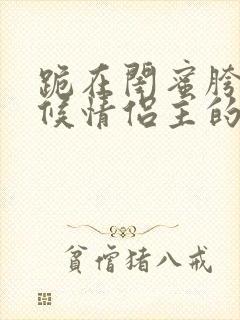 跪在閨蜜胯
候情侶主的
貧僧猪八戒